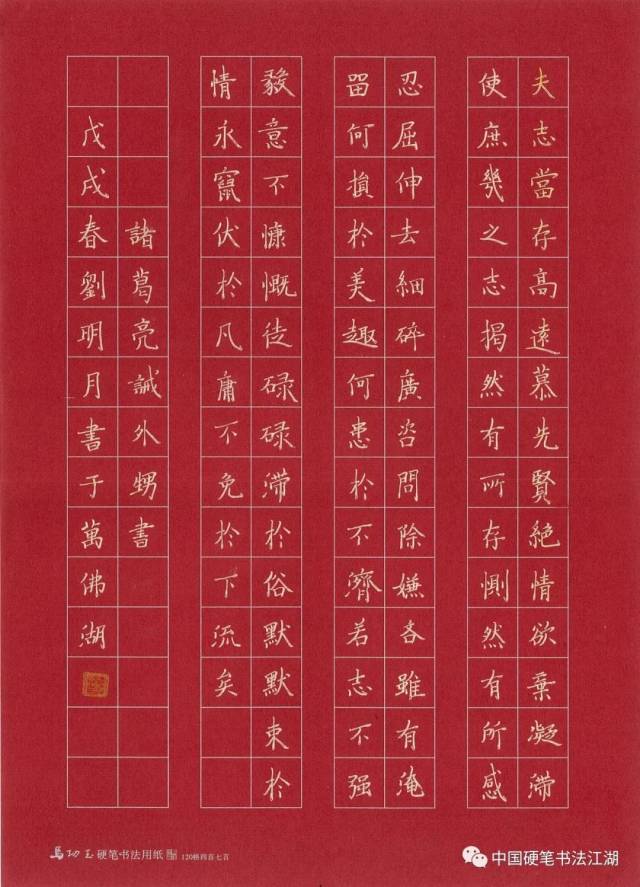 夫志當存高遠慕先賢絕情欲棄凝滯
使庶幾之志揭然有所存惻然有所感
忍屈伸去細碎廣咨問除嫌吝雖有淹
畱何損於美趣何患於不濟若志不强
毅意不慷慨徒碌碌滯於俗默默束於
情永竄伏於凡庸不免於下流矣
諸葛亮誡外甥書
戊戌春劉明月書于萬佛湖
硬笔书法用纸 120格四百七百
中国硬笔书法江湖